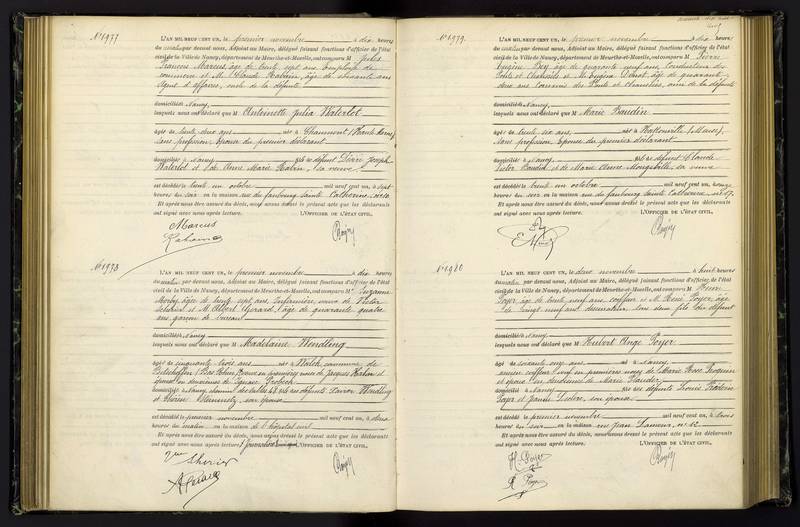 N° 1977
L'AN MIL NEUF CENT UN, le premier novembre à dix heures
du matin par devant nous, Adjoint au Maire, délégué faisant fonctions d'officier de l'état
civil de la Ville de Nancy, département de Meurthe-et-Moselle, ont comparu M Jules
François Marcus âgé de trente sept ans, Employé de
commerce et M. Claude âge de soixante ans
Agent d'affaires, oncle de la défunte
domiciliés à Nancy
lesquels nous ont déclaré que M Antoinette Julia Waterlot
agée de trente deux ans née à Chaumont (Haute Marne)
sans profession, épouse du premier déclarant
domiciliée à Nancy fille de défunt Désiré Joseph
Waterlot et de Anne Marie sa veuve
est décédée le trente un octobre mil neuf cent un, à sept
heures du soir en la maison rue du faubourg Sainte Catherine, n° 10.
Et après nous être assuré du décès, nous avons dressé le présent acte que les déclarants
ont signé avec nous après lecture. L'OFFICIER DE L'ÉTAT CIVIL,
Marcus
N° 1978
L'AN MIL NEUF CENT UN, le premier novembre à dix heures
du matin par devant nous, Adjoint au Maire, délégué faisant fonctions d'officier de l'état
civil de la Ville de Nancy, département de Meurthe-et-Moselle, ont comparu M Suzanne
âgée de trente sept ans, Infirmière, veuve de Victor
et M. Albert Girard, âgé de quarante quatre
ans garçon de bureau
domiciliés à Nancy
lesquels nous ont déclaré que M Madelaine Wendling
agée de cinquante trois ans née à commune de
(Bas Rhin) veuve en premières noces de Jacques et
épouse en deuxièmes de Ignace
domiciliée à Nancy, 48 fille des défunts Xavier Wendling
et Thérèse son épouse
est décédée le premier novembre mil neuf cent un, à deux
heures du matin en la maison de l'hôpital civil
Et après nous être assuré du décès, nous avons dressé le présent acte que les déclarants
ont signé avec nous après lecture. L'OFFICIER DE L'ÉTAT CIVIL,
N° 1979.
L'AN MIL NEUF CENT UN, le premier novembre à dix heures
du matin par devant nous, Adjoint au Maire, délégué faisant fonctions d'officier de l'état
civil de la Ville de Nancy, département de Meurthe-et-Moselle, ont comparu M Pierre
Eugène âgé de quarante neuf ans, Conducteur des
Ponts et Chaussées et M. Eugène âgé de quarante
deux ans Commis des Ponts et Chaussées, ami de la défunte
domiciliés à Nancy
lesquels nous ont déclaré que M Marie Baudin
agée de trente six ans née à (Meuse),
sans profession, Epouse du premier déclarant
domiciliée à Nancy fille de défunt Claude
Victor Baudin et de Marie Anne sa veuve
est décédée le trente un octobre mil neuf cent un, à onze
heures du soir en la maison rue du faubourg Sainte Catherine, n° 17.
Et après nous être assuré du décès, nous avons dressé le présent acte que les déclarants
ont signé avec nous après lecture. L'OFFICIER DE L'ÉTAT CIVIL,
N° 1980
L'AN MIL NEUF CENT UN, le deux novembre à huit heures
du matin par devant nous, Adjoint au Maire, délégué faisant fonctions d'officier de l'état
civil de la Ville de Nancy, département de Meurthe-et-Moselle, ont comparu M Henri
Poyer âgé de trente neuf ans, coiffeur et M. René Poyer, âgé
de vingt neuf ans, dessinateur, tous deux fils du défunt
domiciliés à Nancy
lesquels nous ont déclaré que M Hubert Ange Poyer
agé de soixante onze ans né à Nancy
ancien coiffeur, veuf en premières noces de Marie Rose
et époux en deuxièmes de Marie
domicilié à Nancy fils des défunts Louis Frédéric
Poyer et Jeanne son épouse
est décédé le premier novembre mil neuf cent un, à trois
heures du soir en la maison rue Jean Lamour, n° 12
Et après nous être assuré du décès, nous avons dressé le présent acte que les déclarants
ont signé avec nous après lecture. L'OFFICIER DE L'ÉTAT CIVIL,
H. Poyer
R. Poyer